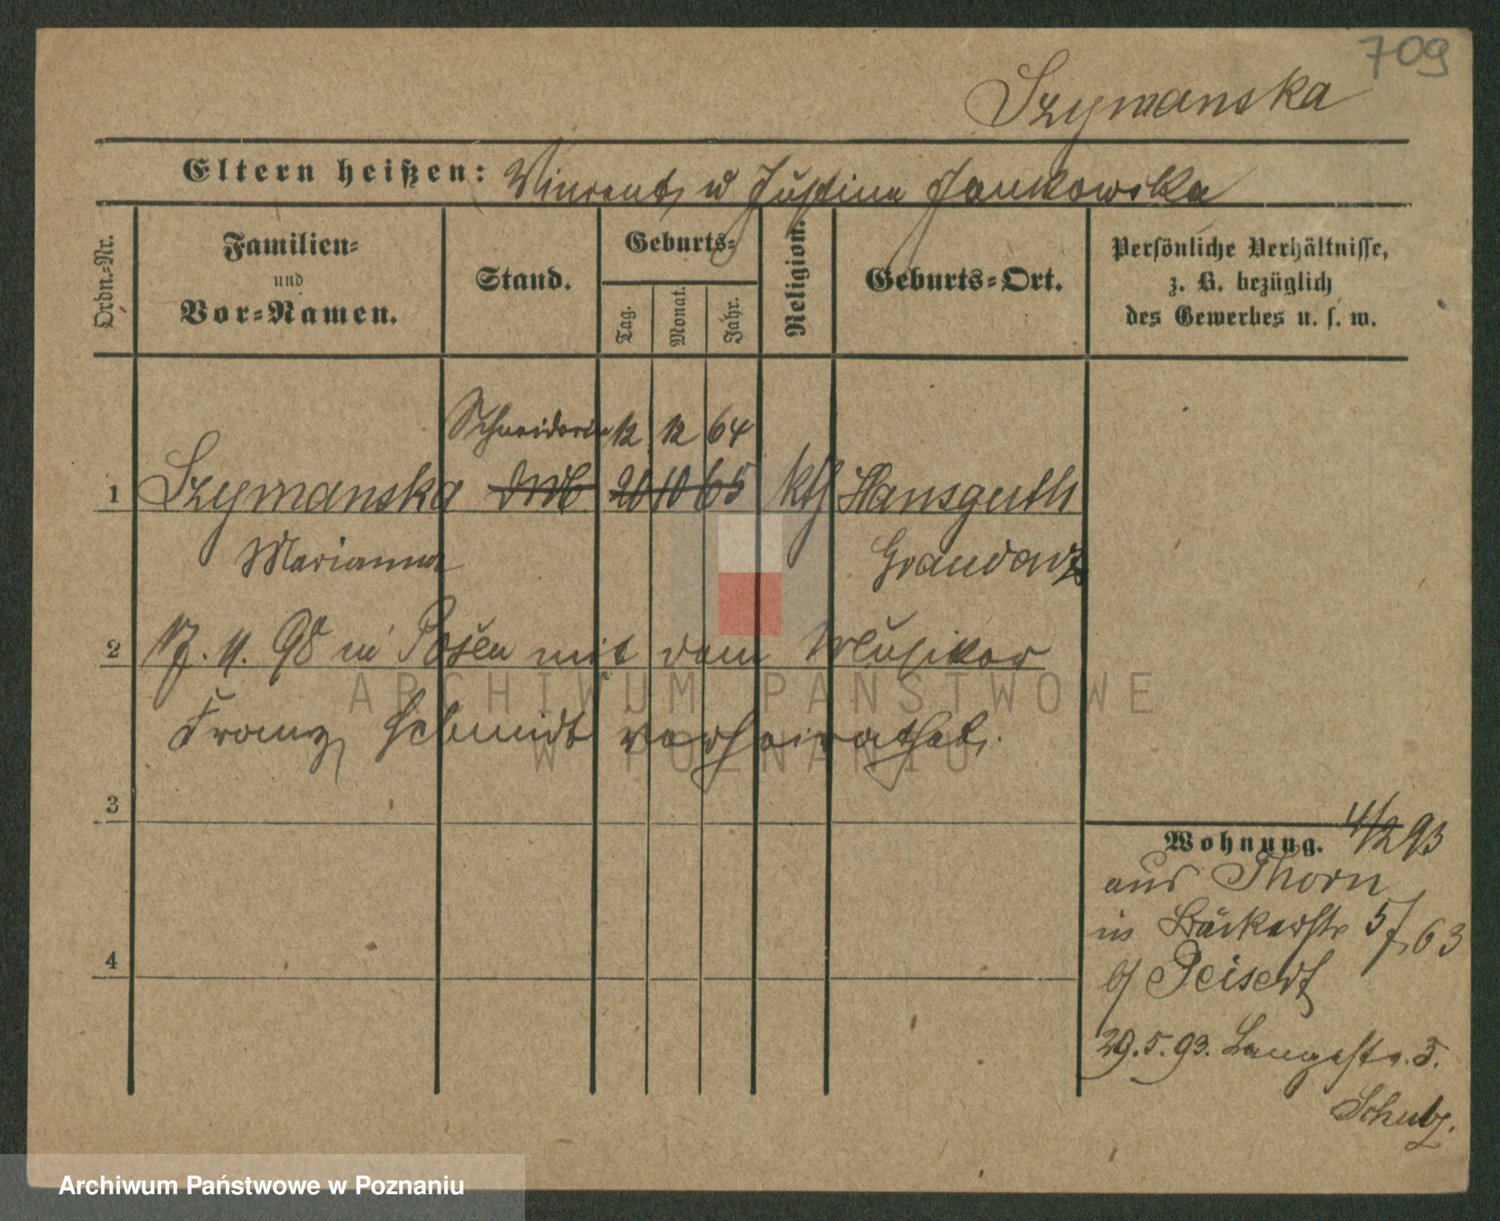 709
Szymanska
Eltern heißen: Vincent u Justina Jankowska
Ordn.-Nr.
Familien-
und
Vor-Namen.
Stand.
Geburts-
Tag.
Monat.
Jahr.
Religion.
Geburts-Ort.
Persönliche Verhältnisse,
z. B. bezüglich
des Gewerbes u. s. w.
Schneiderin 12 12 64
1 Szymanska 20 10 65 kth Hansguth
Marianna Graudenz
2 17. 11. 98 in Posen mit dem Musiker
Franz Schmidt verheirathet.
3
4
Wohnung. 4/2 93
aus Thorn
in Bäckerstr 5/ 63
b/ Peisert
29. 5. 93. Langestr. 3.
Schulz.
ARCHIWUM PAŃSTWOWE
W POZNANIU
Archiwum Państwowe w Poznaniu